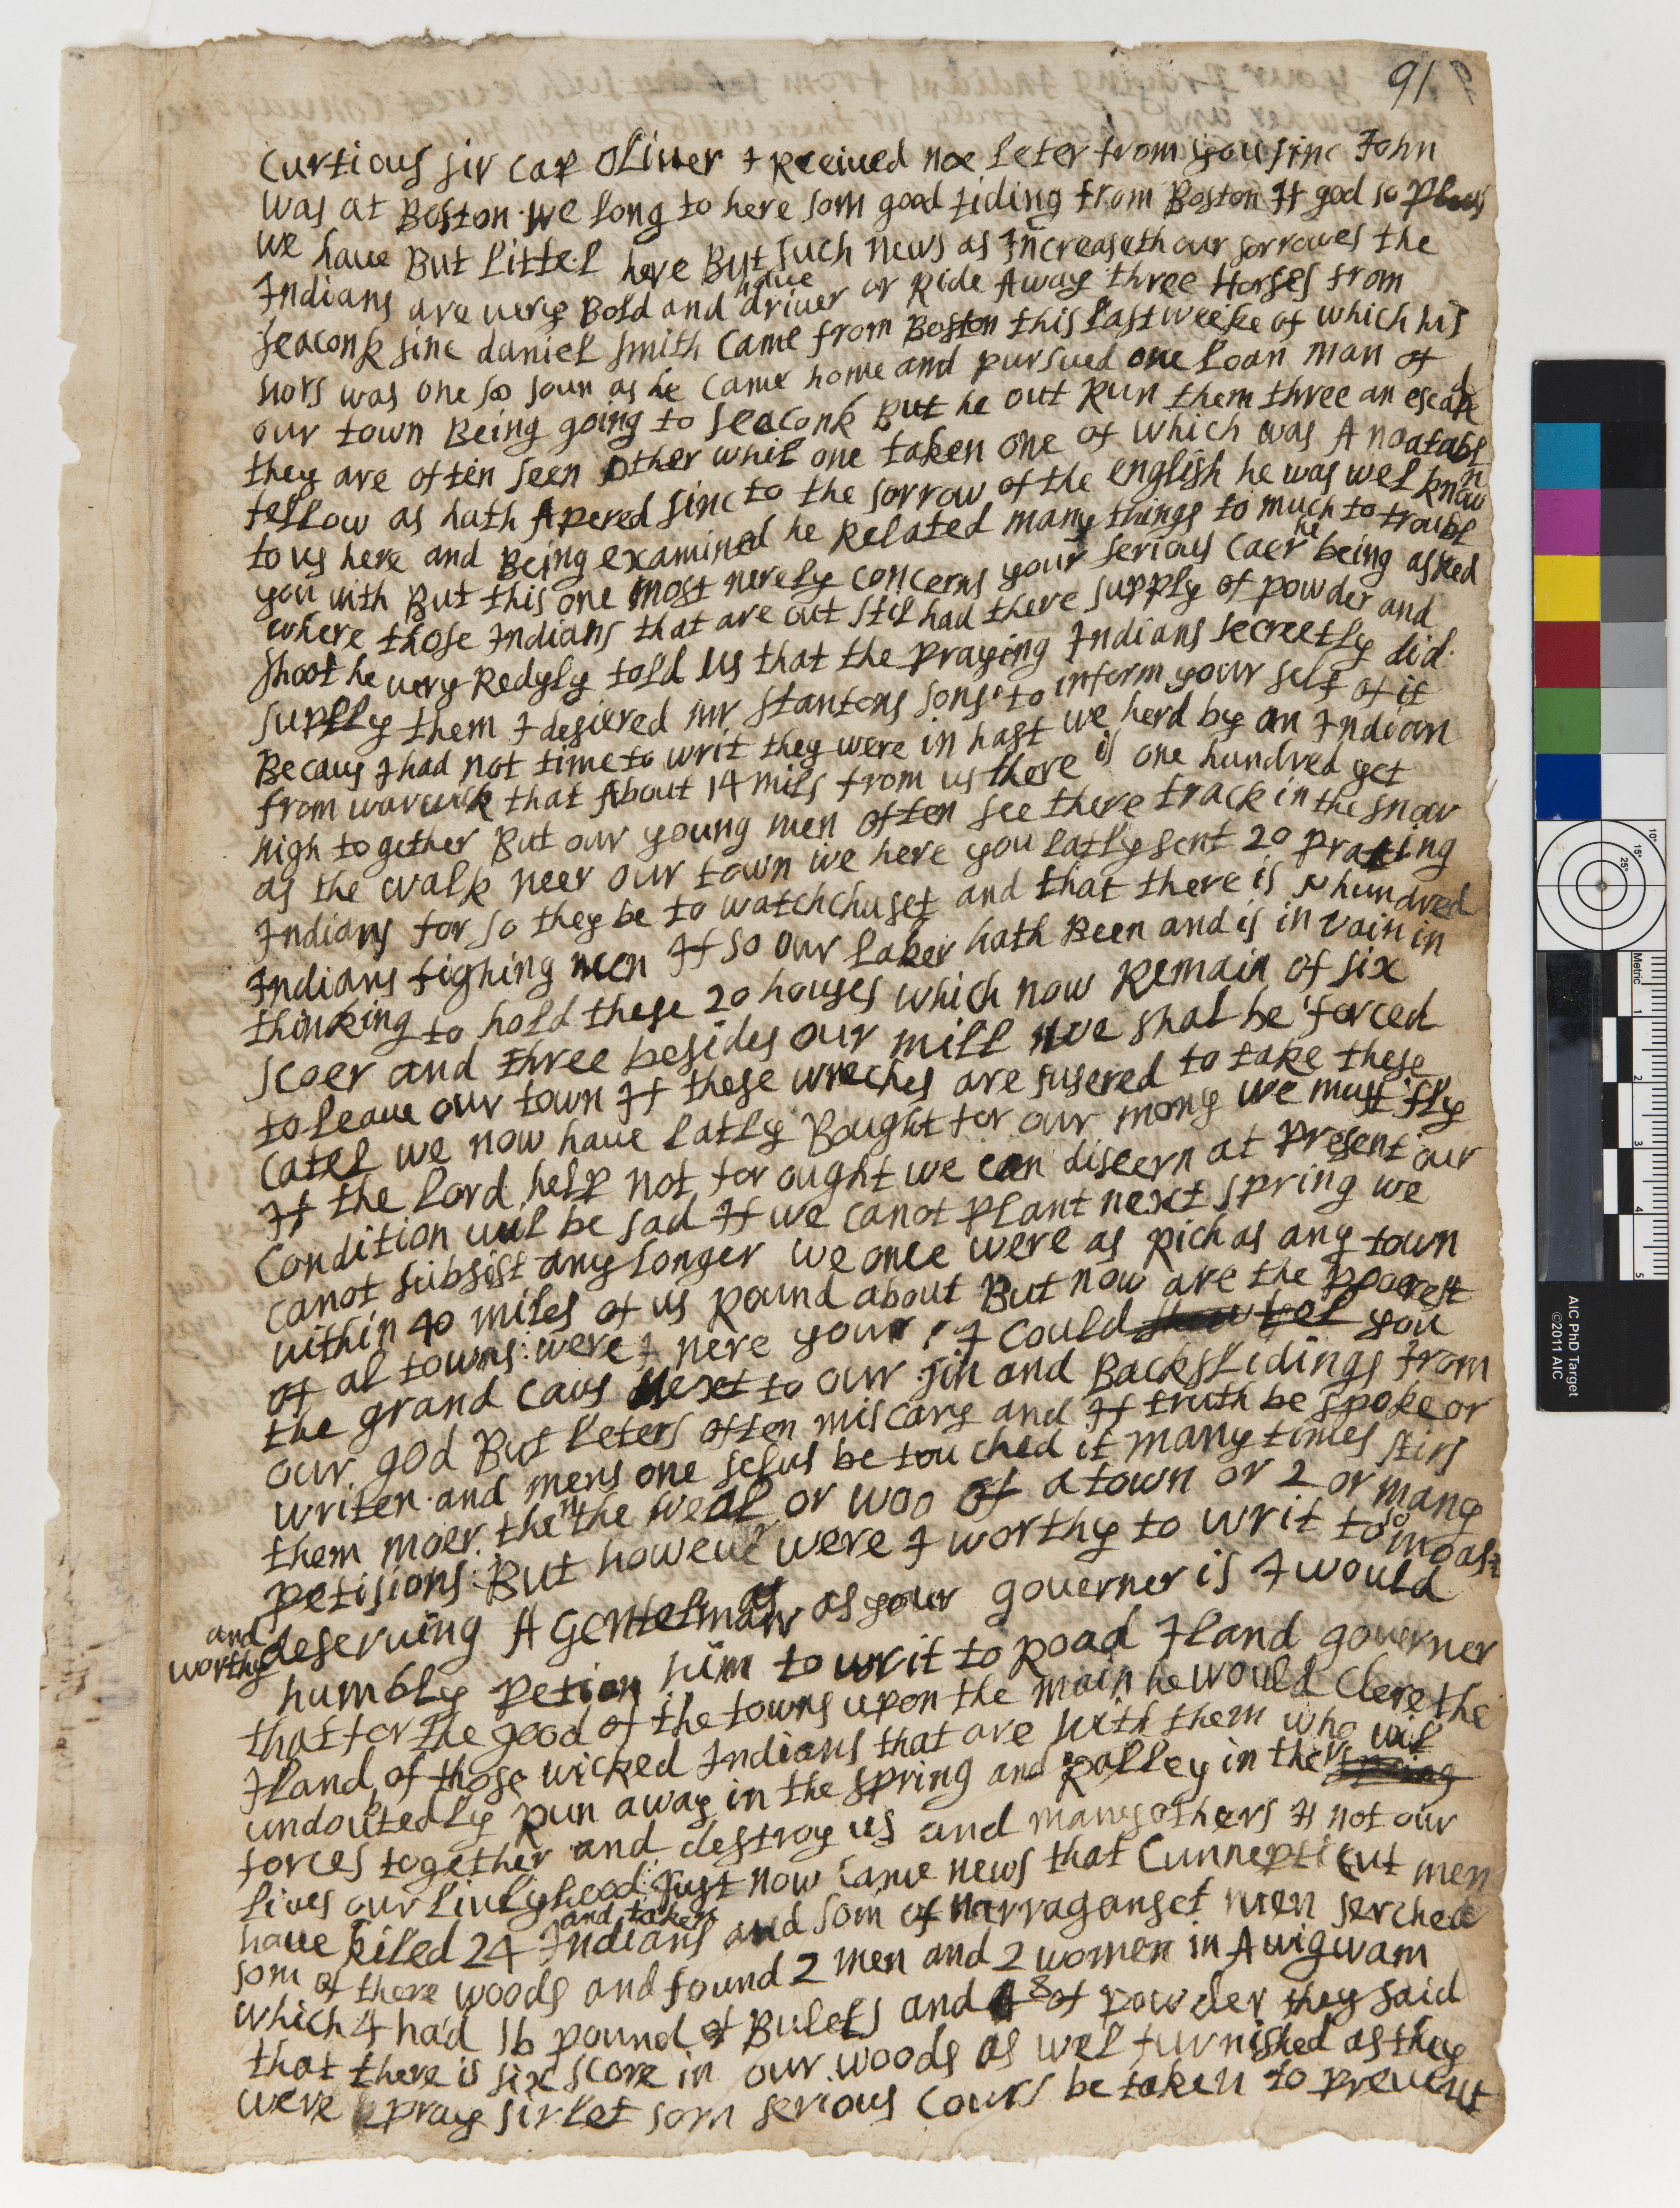 91
Curtious sir Cap Oliver I Received noe leter from you sinc John
was at Boston we long to here som good tiding from Boston If god so pleas
we have But littel here But such news as Increaseth our sorrowes the
Indians are very Bold and have driven or Ride Away three Horses from
seaconk sinc daniel smith Came from Boston this last weeke of which his
hors was one so soun as he came home and pursued one loan man of
our town Being going to seaconk But he out Run them three an escape
they are often seen other whil one taken one of which was A noatabl
fellow as hath Apered sinc to the sorrow of the english he was wel known
to us here and Being examined he Related many things to much to troubl
you with But this one most nerely concerns your serious Caer he being asked
where those Indians that are out stil had there supply of powder and
shoot he very Redyly told us that the praying Indians secreetly did
supply them I desiered mr stantons sons to inform your self of it
Becaus I had not time to writ they were in hast we herd by an Indian
from warwick that About 14 mils from us there is one hundred yet
nigh together But our young men often see there track in the snow
as the walk neer our town we here you latly sent 20 prating
Indians for so they be to watchchuset and that there is hundred
Indians fighing men If so our laber hath Been and is in vain in
thinking to hold these 20 houses which now Remain of six
scoer and three besides our mill we shal be forced
to leave our town If these wreches are sufered to take these
Catel we now have latly Bought for our mony we must fly
If the lord help not for ought we can discern at present our
Condition wil be sad If we canot plant next spring we
canot subsist any longer we once were as Rich as any town
within 40 miles of us Round about But now are the poorest
of al towns: were I nere your I could tel you
the grand Caus next to our sin and Backslidings from
our god But leters often miscary and If truth be spoke or
writen and mens one selvs be touched it many times stirs
them moer then the weal or woo of a town or 2 or many
petisions: But however were I worthy to writ to so moast
and worthy deserving A Gentelman as your governer is I would
humbly petion him to writ to Road Iland governer
that for the good of the towns upon the main he would Clere the
Iland of those wicked Indians that are with them who wil
undoutedly Run away in the spring and Ralley in there
forces together and destroy us and many others If not our
lives our livlyhood: Just now came news that Cunnepticut men
have kiled and taken 24 Indians and som of narraganset men serched
som of there woods and found 2 men and 2 women in A wigwam
which 4 had 16 pound of Bulets and 8 of powder they said
that there is six score in our woods as wel furnished as they
were pray sir let som serious Cours be taken to prevent
AIC PhD Target
©2011 AIC
Metric
1
2
3
4
5